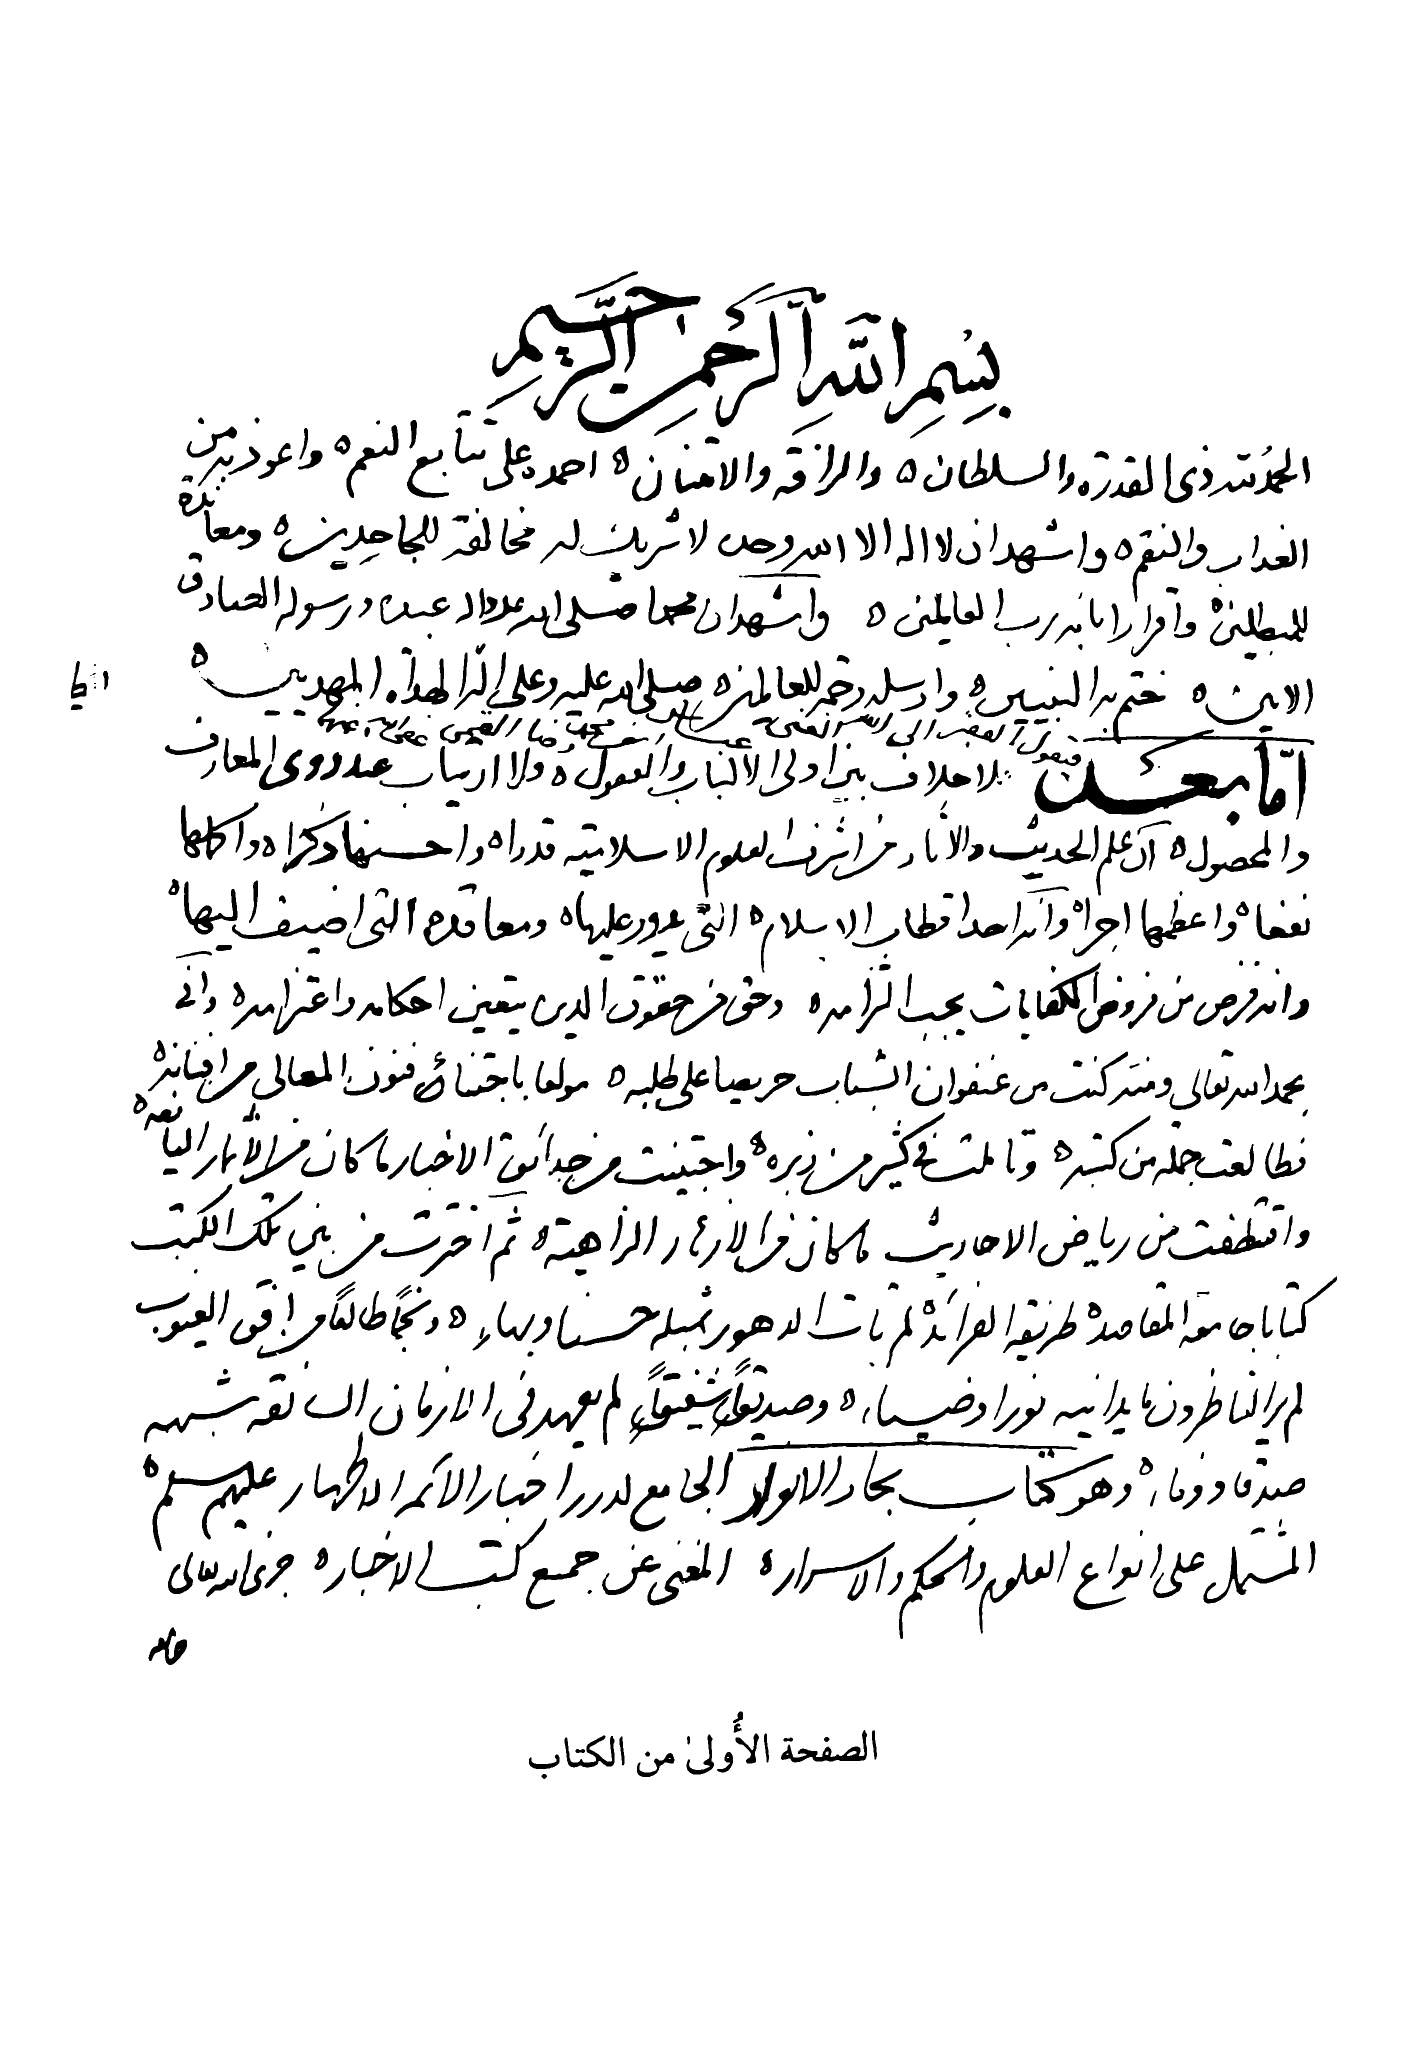 بسم الله الرحمن الرحيم
الحمد لله ذي القدرة والسلطان ه والرافة والامتنان ه احمده على تتابع النعم ه واعوذ به من
العذاب والنقم ه واشهد ان لا اله الا الله وحده لا شريك له مخالفة للجاحدين ه ومعاندة
للمبطلين ه واقرارا بانه رب العالمين ه واشهد ان محمدا صلى الله عليه واله عبده ورسوله الصادق
الامين ه ختم به النبيين ه وارسله رحمة للعالمين ه صلى الله عليه وعلى اله الهداة المهديين ه
فيقول الفقير الى الله الغنى محمد رضا القمى عفى الله عنهما
امّا بعد فلا خلاف بين اولى الالباب والعقول ه ولا ارتياب عند ذوى المعارف
والمحصول ه ان علم الحديث والاثار من اشرف العلوم الاسلامية قدرا ه واحسنها ذكرا ه واكملها
نفعا ه واعظمها اجرا ه وانه احد اقطاب الاسلام ه التى يدور عليها ه ومعاقده التى اضيف اليها ه
وانه فرض من فروض الكفايات يجب التزامه ه وحق من حقوق الدين يتعين احكامه واعتزامه ه وانى
بحمد الله تعالى ومنه كنت من عنفوان الشباب حريصا على طلبه ه مولعا باجتناء فنون المعالي من افنانه ه
فطالعت جملة من كتبه ه وتاملت في كثير من زبره ه واجتنيت من حدائق الاخبار ما كان من الاثمار اليانعه ه
واقتطفت من رياض الاحاديث ما كان من الازهار الزاهية ه ثم اخترت من بين تلك الكتب
كتابا جامعة المقاصد ه طريفة الفرائد ه لم تات الدهور بمثله حسنا وبهاء ه ونجمًا طالعًا من افق الغيوب
لم ير الناظرون ما يدانيه نورا وضياء ه وصديقًا شفيقًا لم يعهد في الازمان السالفة شبهه
صدقا ووفاء ه وهو كتاب بحار الانوار الجامع لدرر اخبار الائمه الاطهار عليهم سلم ه
المشتمل على انواع العلوم والحكم والاسرار ه المغنى عن جميع كتب الاخبار ه جزى الله تعالى
الصفحة الأُولىٰ من الكتاب